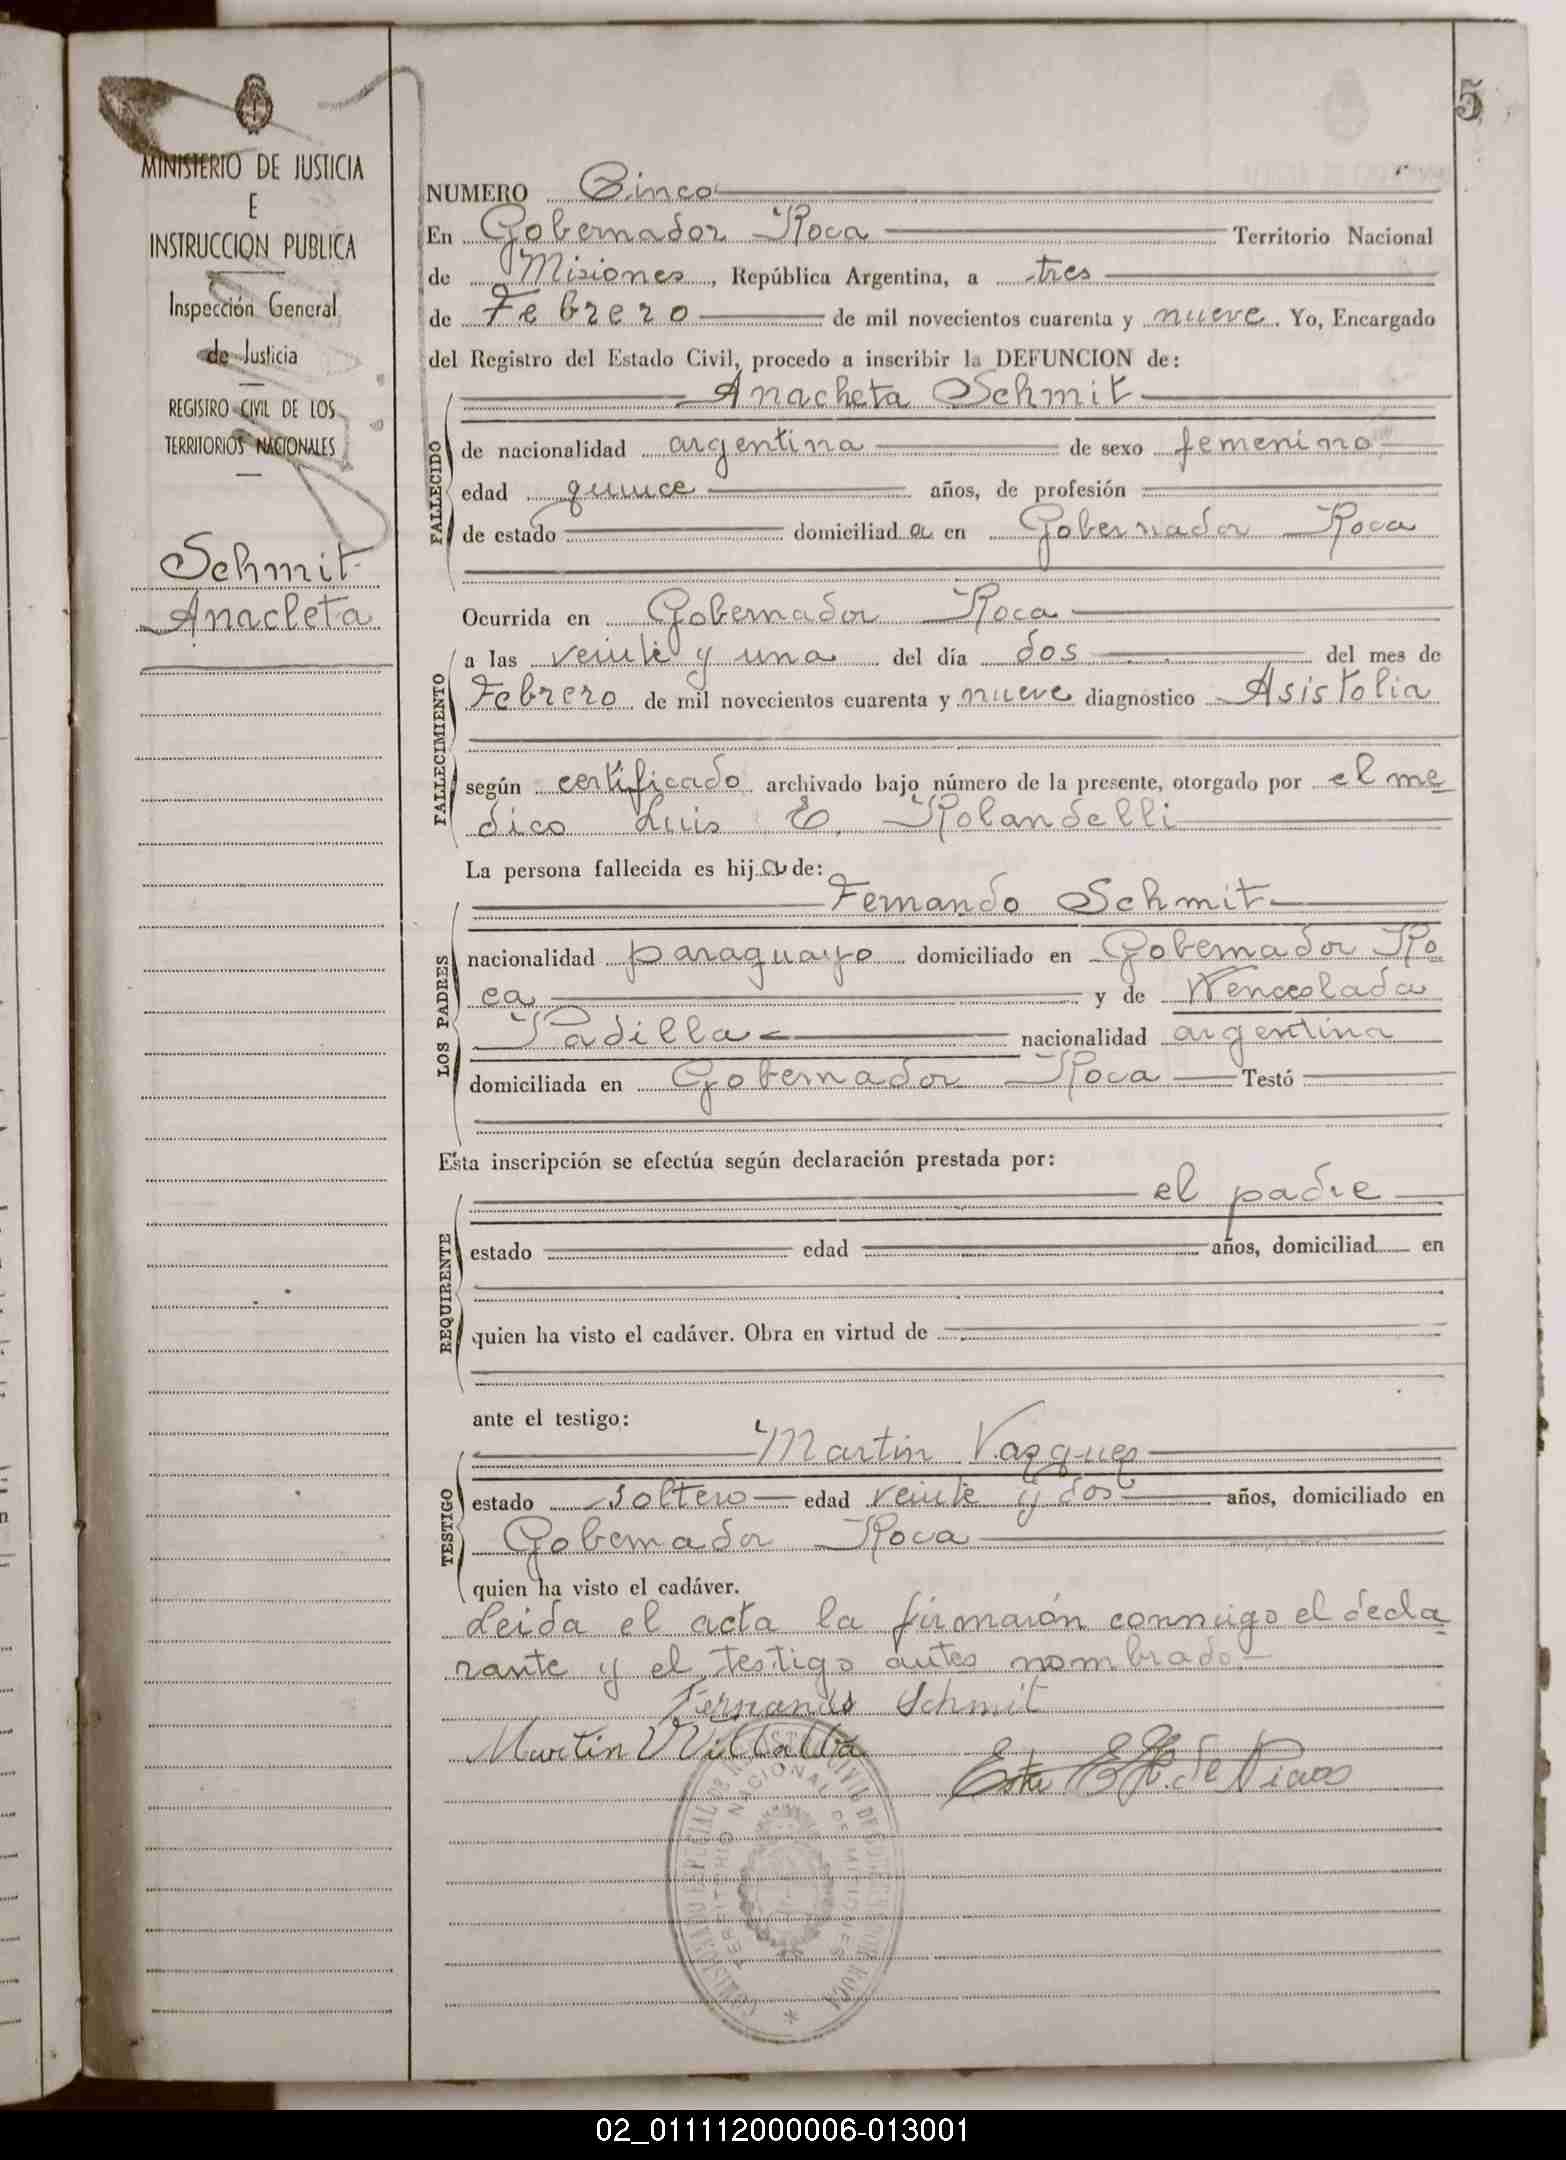 5
MINISTERIO DE JUSTICIA
E
INSTRUCCION PUBLICA
Inspección General
de Justicia
REGISTRO CIVIL DE LOS
TERRITORIOS NACIONALES
Schmit
Anacleta
NUMERO Cinco
En Gobernador Roca Territorio Nacional
de Misiones, República Argentina, a tres
de Febrero de mil novecientos cuarenta y nueve. Yo, Encargado
del Registro del Estado Civil, procedo a inscribir la DEFUNCION de:
FALLECIDO
Anacleta Schmit
de nacionalidad argentina de sexo femenino
edad quince años, de profesión
de estado domiciliada en Gobernador Roca
FALLECIMIENTO
Ocurrida en Gobernador Roca
a las veinte y una del día dos del mes de
Febrero de mil novecientos cuarenta y nueve diagnostico Asistolia
según certificado archivado bajo número de la presente, otorgado por el me
dico Luis E. Rolandelli
La persona fallecida es hija de:
LOS PADRES
Fernando Schmit
nacionalidad paraguayo domiciliado en Gobernador Ro
ca y de Wenceslada
Padilla nacionalidad argentina
domiciliada en Gobernador Roca Testó
Esta inscripción se efectúa según declaración prestada por:
REQUIRENTE
el padre
estado edad años, domiciliad en
quien ha visto el cadáver. Obra en virtud de
ante el testigo:
TESTIGO
Martin Vazquez
estado soltero edad veinte y dos años, domiciliado en
Gobernador Roca
quien ha visto el cadáver.
Leida el acta la firmarón conmigo el decla
rante y el testigo antes nombrado
Fernando Schmit
Martin V Villalba
de
REGISTRO CIVIL DE GOBERNADOR ROCA
TERRITORIO NACIONAL DE MISIONES
02_011112000006-013001